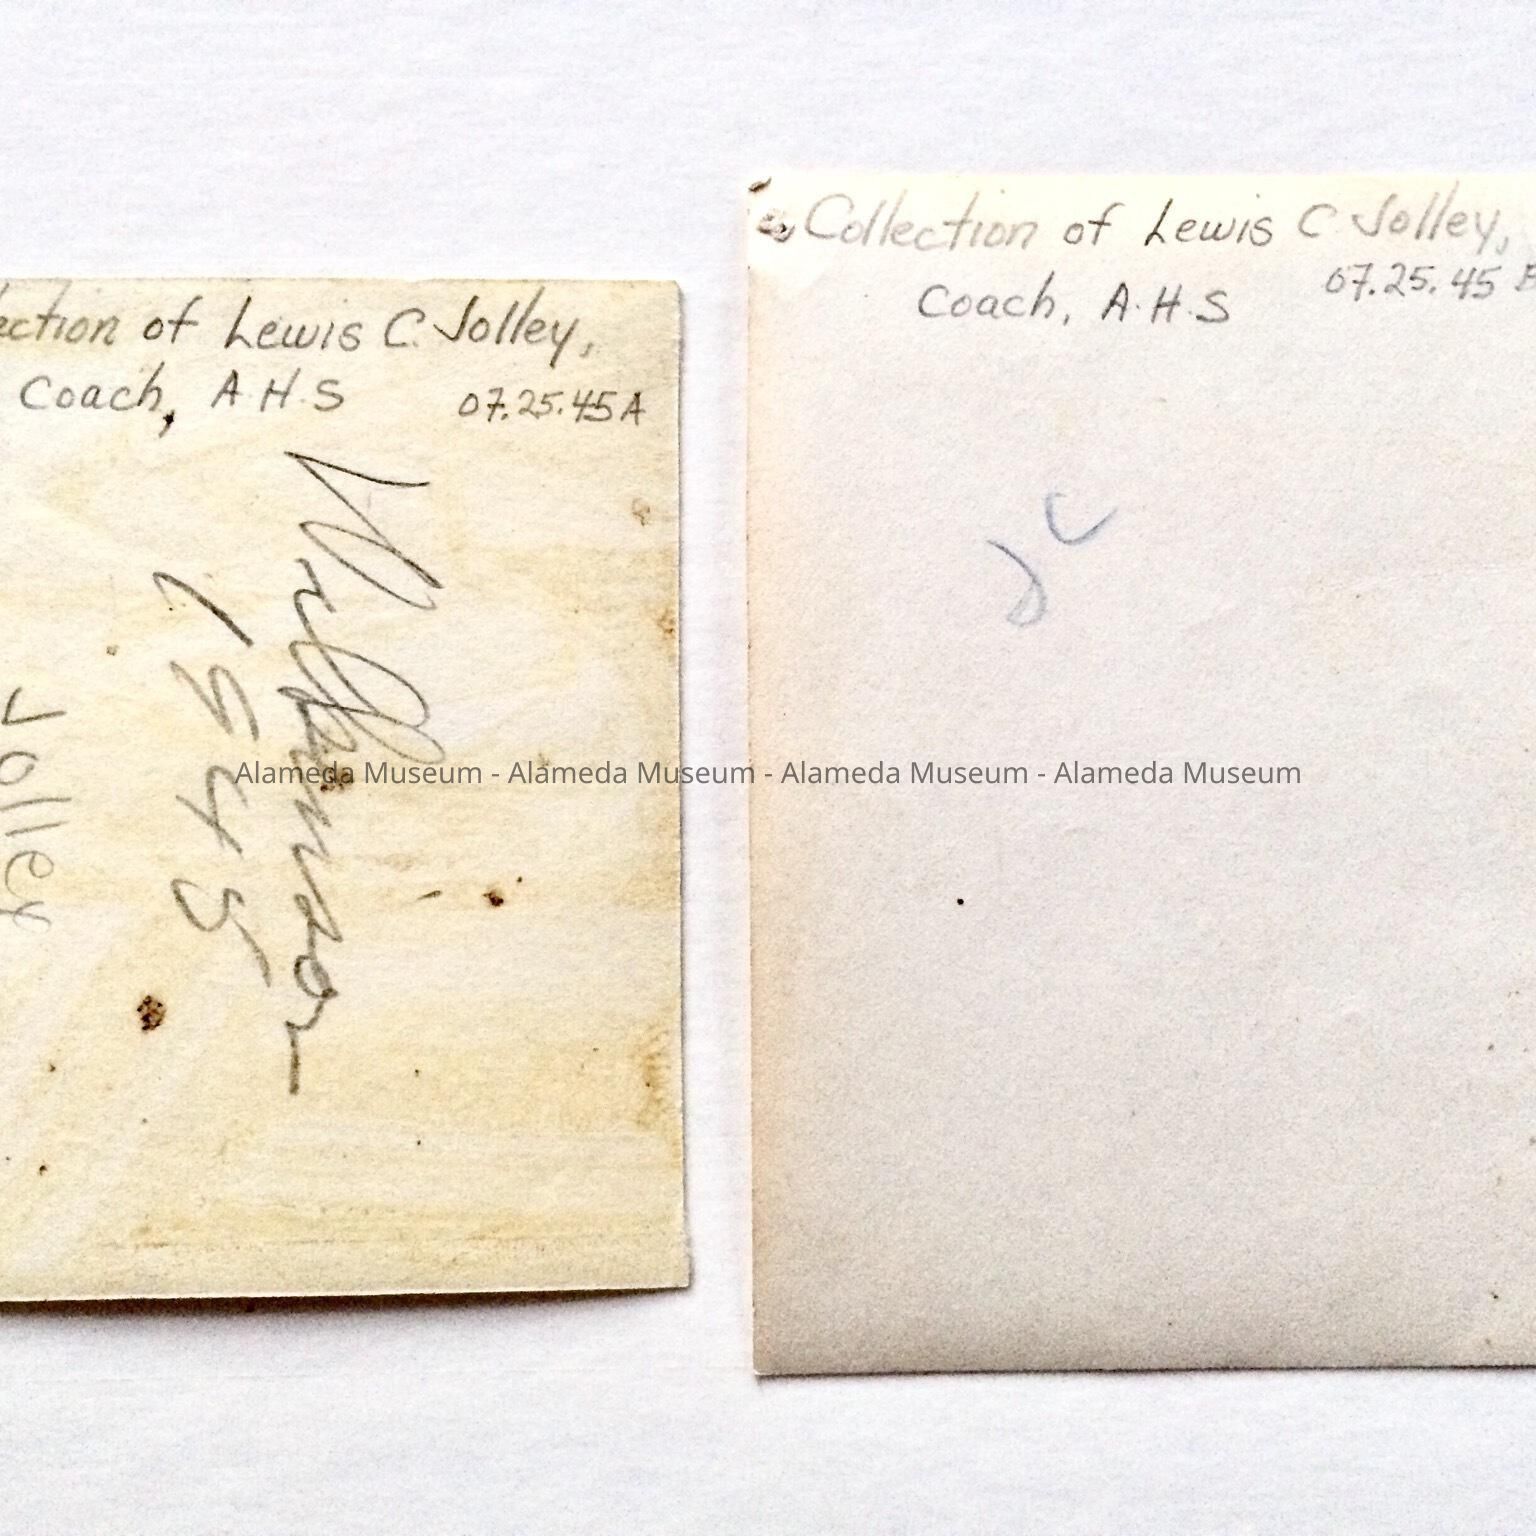 ection of Lewis C. Jolley,
Coach, A.H.S
07.25.45A
1945
Jolley
Collection of Lewis C Jolley,
Coach, A.H.S
07.25.45 B
Alameda Museum - Alameda Museum - Alameda Museum - Alameda Museum